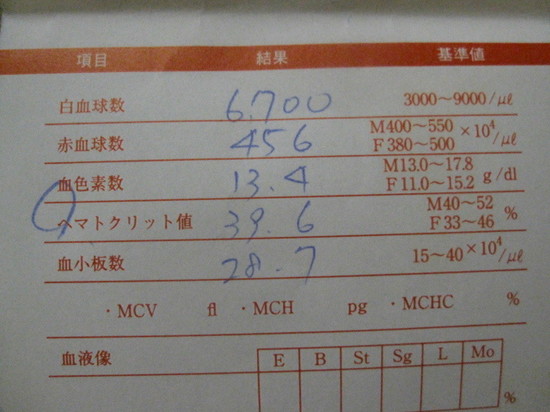 項目 結果 基準値
白血球数 6.700 3000〜9000/μl
赤血球数 456 M400〜550 F380〜500 ×10⁴/μl
血色素数 13.4 M13.0〜17.8 F11.0〜15.2 g/dl
ヘマトクリット値 39.6 M40〜52 F33〜46 %
血小板数 28.7 15〜40×10⁴/μl
・MCV fl ・MCH pg ・MCHC %
血液像 E B St Sg L Mo
%